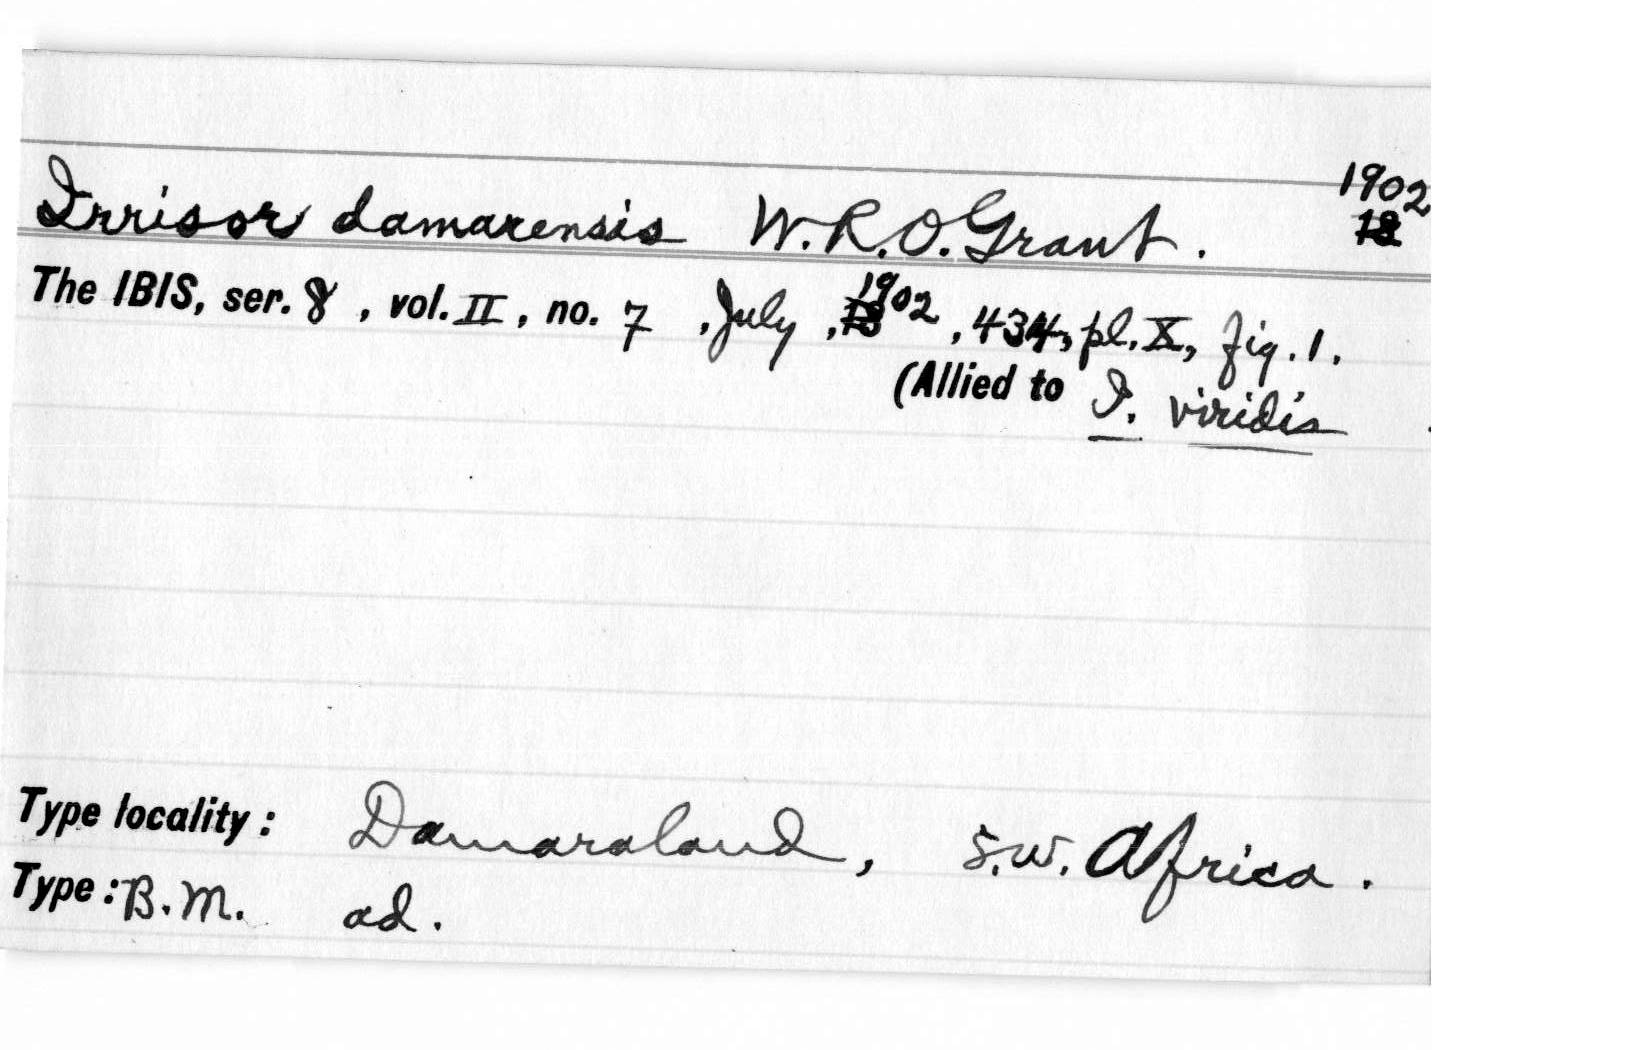 1902
Irrisor damarensis W.R.O.Grant. 18
The IBIS, ser. 8, vol. II, no. 7, July, 18 1902, 434, pl. X, fig. 1.
(Allied to I. viridis.
Type locality: Damaraland, S.W. Africa.
Type: B.M. ad.